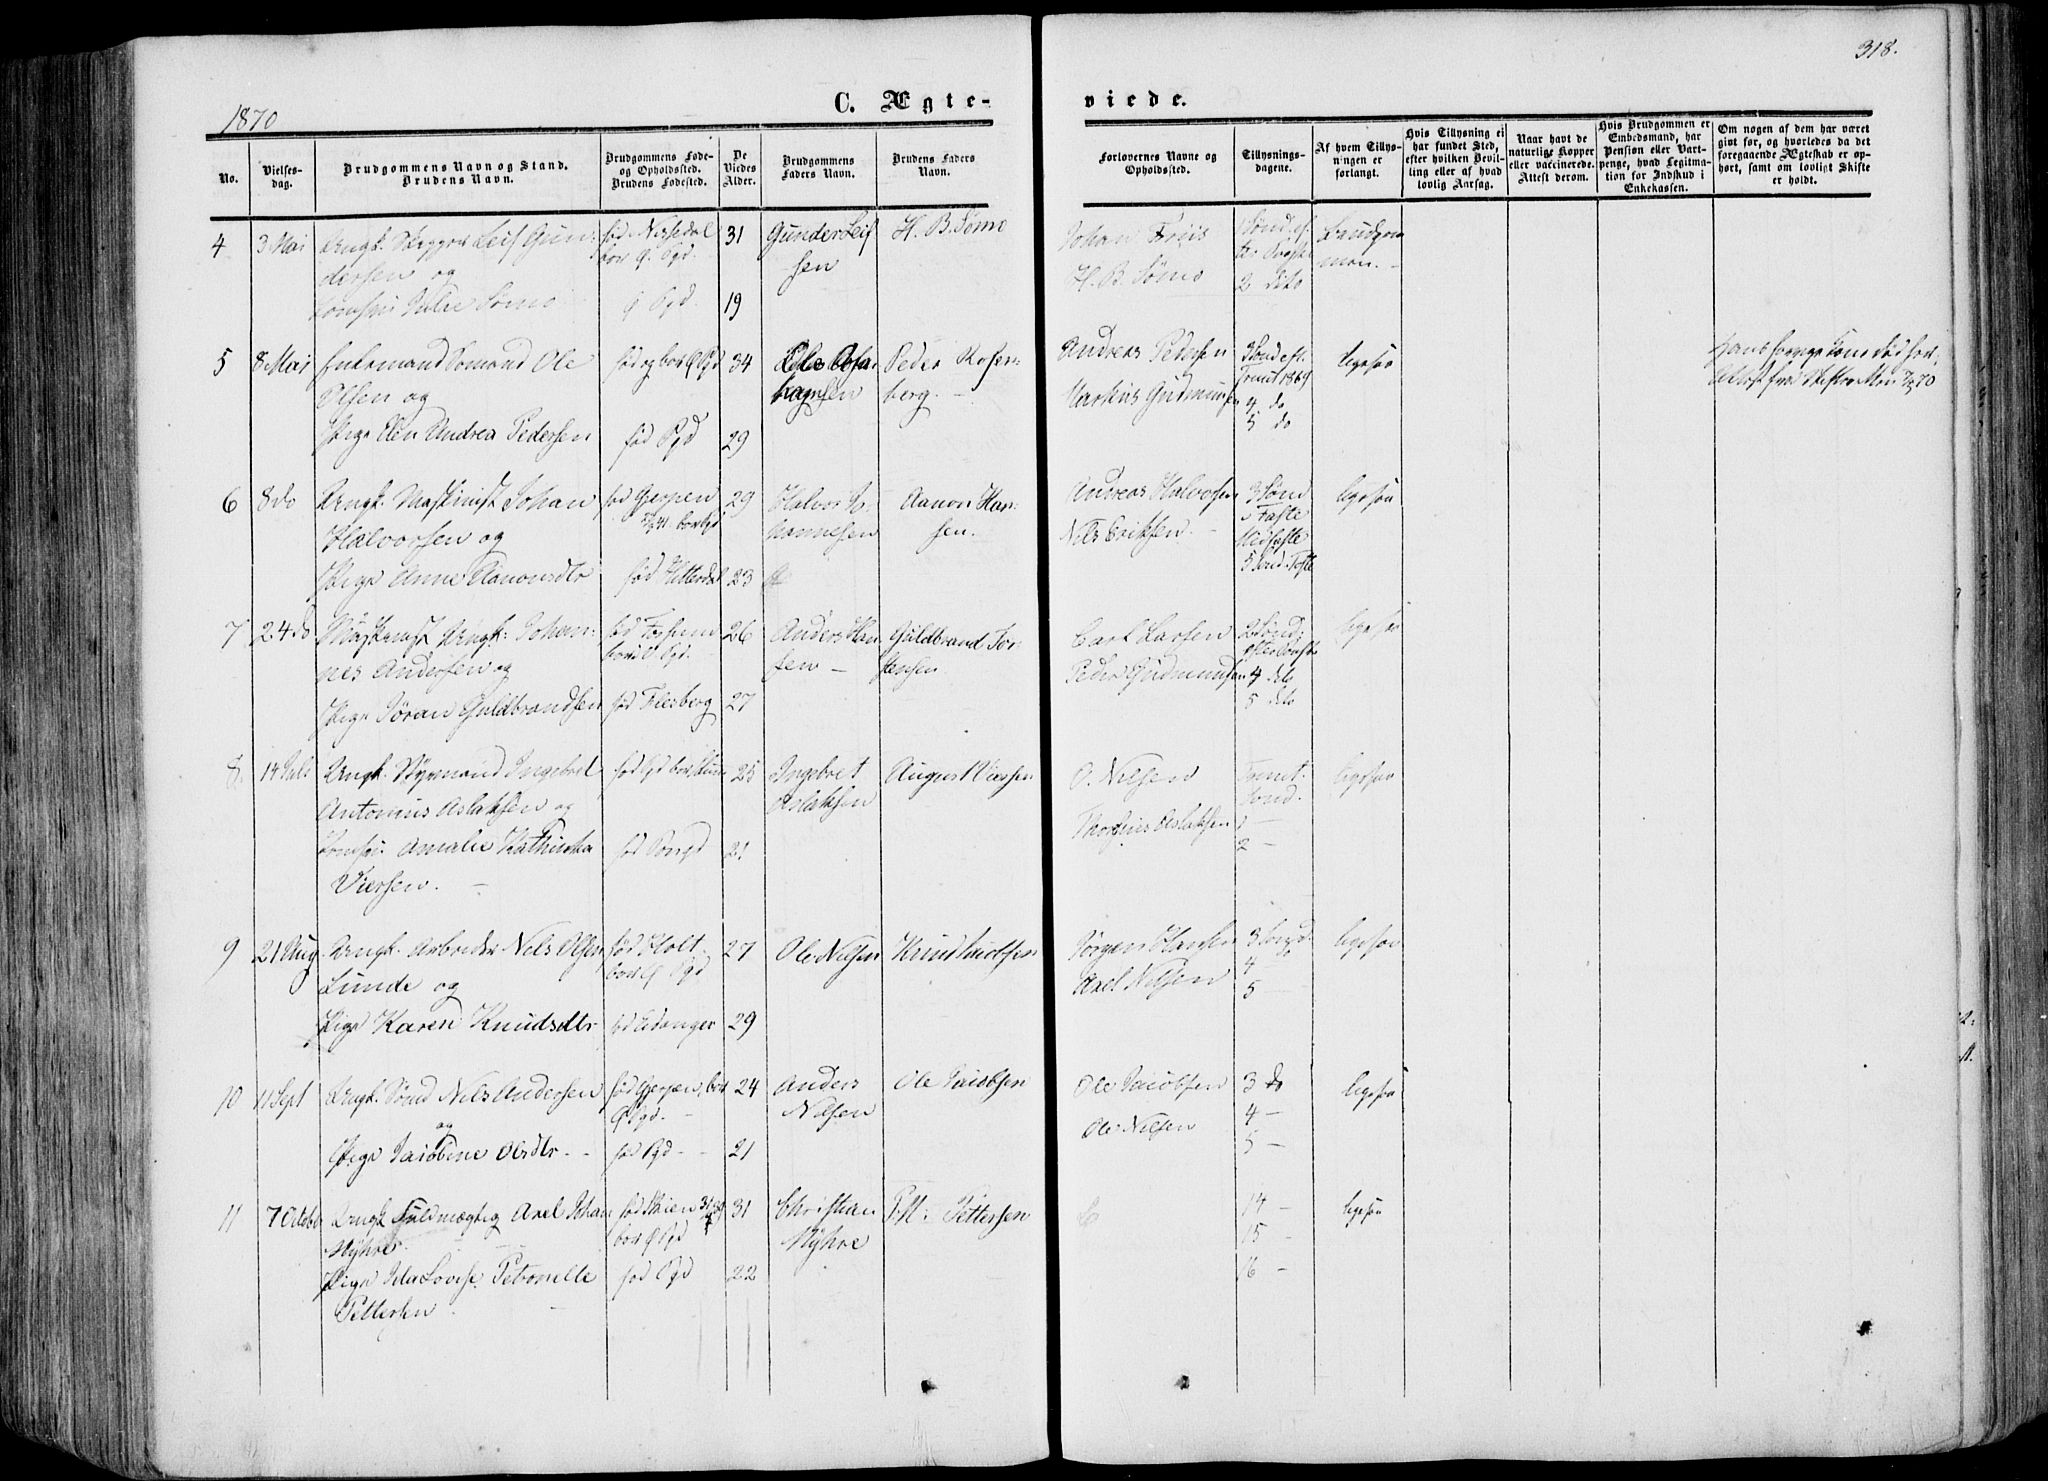 318.
1870
C. Ægte-
viede.
No.
Vielses-
dag.
Brudgommens Navn og Stand.
Brudens Navn.
Brudgommens Føde-
og Opholdssted.
Brudens Fødested.
De
Viedes
Alder.
Brudgommens
Faders Navn.
Brudens Faders
Navn.
Forlovernes Navne og
Opholdssted.
Tillysnings-
dagene.
Af hvem Tillys-
ningen er
forlangt.
Hvis Tillysning ei
har fundet Sted,
efter hvilken Bevil-
ling eller af hvad
lovlig Aarsag.
Naar havt de
naturlige Kopper
eller vaccinerede.
Attest derom.
Hvis Brudgommen er
Embedsmand, har
Pension eller Vart-
penge, hvad Legitma-
tion for Indskud i
Enkekassen.
Om nogen af dem har været
givt før, og hvorledes da det
foregaaende Ægteskab er op-
hørt, samt om lovligt Skifte
er holdt.
4 3 Mai Ungk. Skipper Leif Gun-
dersen og
Jomfru Julie Sømo
fød Nissedal
bor P. Pgd.
P. Pgd.
31
19
Gunder Leif
sen
H. B. Sømo
Johan Friis
H. B. Sømo
1 Sønd. ef
ter Paaske
2 dito
Brudgom
men. -
5 8 Mai Enkemand Sømand Ole
Olsen og
Pige Elen Andrea Pedersen
fød og bor P Pgd
fød Pgd
34
29
Ole
Peder Rosen-
berg. -
Andreas Pedersen
Markus Gudmunsen
3 Sønd eft.
Trinit 1869
4 do
5 do
ligesaa
Hans forrige Kone død
Attest fra Skifteretten 70
6 8 do Ungk. Maskinist Johan
Halvorsen og
Pige Anne Aanonsdtr
fød Gjerpen
bor Pgd
fød Hitterdal
29
23
Halvor Jo-
hannesen
Aanon Han-
sen.
Andreas Halvorsen
Nils Eriksen. -
3 Sønd
i Faste
Midfaste
5 Sønd. i Faste
ligesaa
7 24 do Maskinist Ungk. Johan-
nes Andersen og
Pige Søran Guldbrandsen
fød Fossum
bor P. Pgd.
fød Flesberg
26
27
Anders Han
sen -
Guldbrand Tor-
stensen
Carl Larsen
Peder Gudmundsen
2 Sønd.
efter
4 dito
5 dito
ligesaa
8. 14 Juli Ungk. Styrmand Ingebret
Antonius Aslaksen og
Jomfru Amalie Kathinka
Viersen. -
fød Pgd bor
fød Porsgd
25
21
Ingebret
Aslaksen
August Viersen
O. Nilsen
Thorsius Aslaksen
Trinit.
Sønd.
1 -
2 -
ligesaa
9 21 Aug. Ungk. Arbeider Nils Olsen
Lunde og
Pige Karen Knudsdtr
fød Holt.
bor P Pgd
fød Eidanger
27
29
Ole Nilsen
Knud Jacobsen
Jørgen Hansen
Axel Nilsen
3 Søngd.
4 -
5 -
ligesaa
10 11 Sept Ungk. Sømd Nils Andersen
og
Pige Jacobine Olsdtr. -
fød Gjerpen, bor
P Pgd. -
fød Pgd -
24
21
Anders
Nilsen
Ole Jacobsen
Ole Jacobsen
Ole Nilsen
3 do
4 -
5 -
ligesaa
11 7 Octobr Ungk Fuldmægtig Axel Johan
Myhre
Pige Ida Lovise Petronelle
Pettersen
fød Skien
bor P Pgd
fød Pgd
31
22
Christian
Myhre
P. M. Pettersen
14 -
15 -
16 -
ligesaa